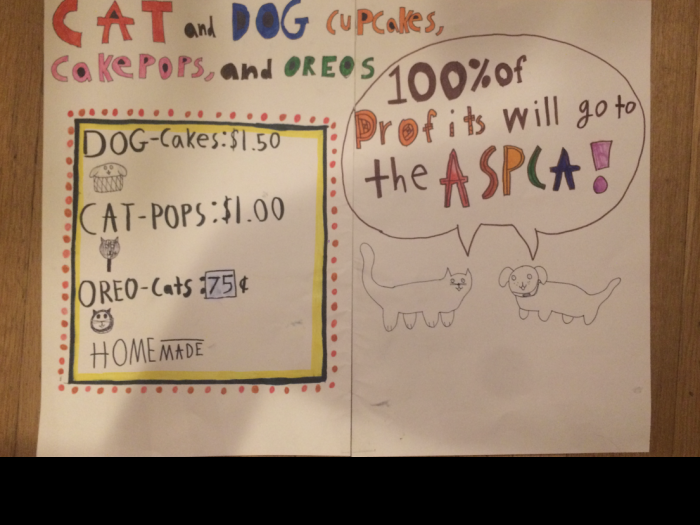 CAT and DOG CUPCakes,
CakePOPS, and OREOS
DOG-Cakes:$1.50
CAT-POPS:$1.00
OREO-Cats:75¢
HOMEMADE
100% of
Profits will go to
the ASPCA!